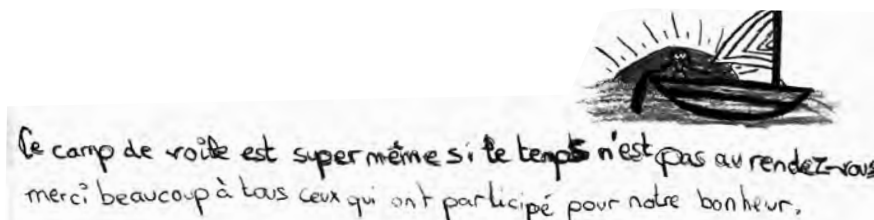 Le camp de voile est super même si le temps n'est pas au rendez-vous
merci beaucoup à tous ceux qui ont participé pour notre bonheur.